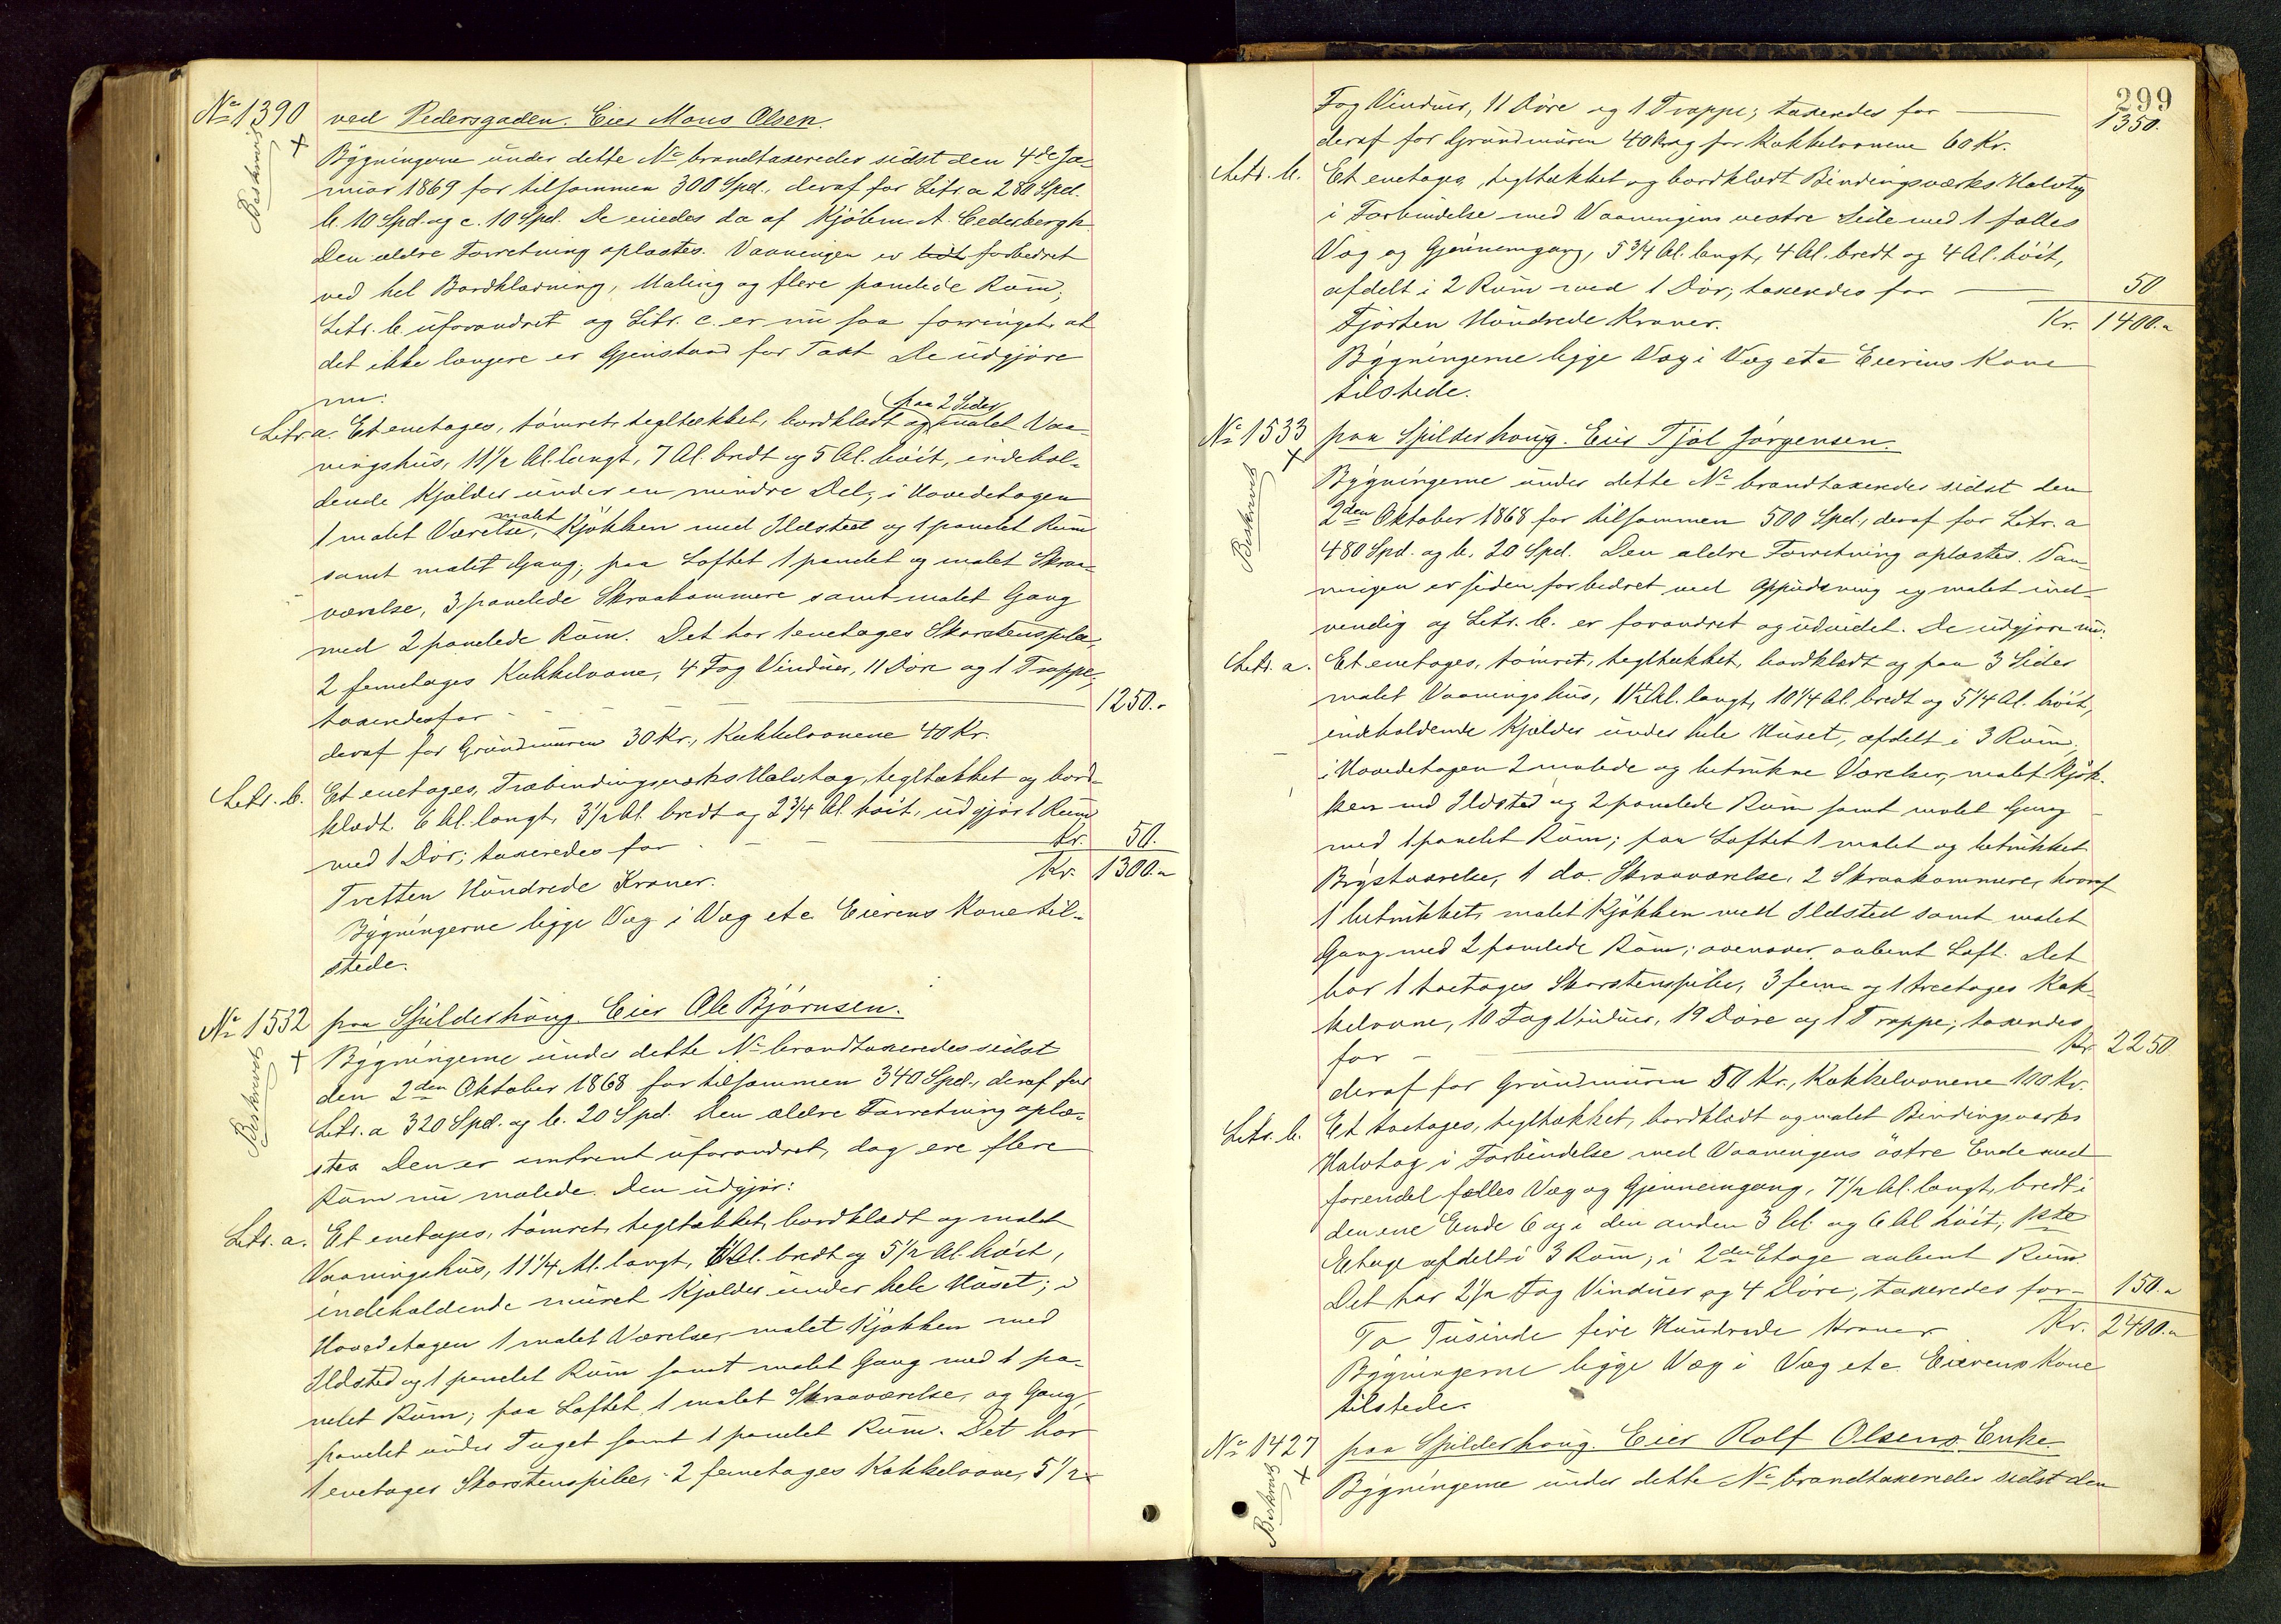 No 1390 ved Pedersgaden. Eier Mons Olsen.
Beskrevet
Bygningerne under dette No brandtaxeredes sidst den 4de Ja-
nuar 1869 for tilsammen 300 Spd., deraf for Litr a 280 Spd.
b. 10 Spd. og c. 10 Spd. De eiedes da af Kjöbm. A. Cedesbergh
Den ældre Forretning oplæstes. Vaaningen er forbedret
ved hel Bordklædning, Maling og flere panelede Rum;
Litr. b uforandret og Litr. c. er nu saa forringet, at
det ikke længere er Gjenstand for Taxt De udgjøre
nu:
paa 2 Sider
Litr a. Et enetages, tömret, tegltækket, bordklædt og malet Vaa-
ningshus, 11 1/2 Al. langt, 7 Al. bredt og 5 Al. höit, indehol-
dende Kjælder under en mindre Del; i Hovedetagen
malet
1 malet Værelse, Kjökken med Ildsted og 1 panelet Rum
samt malet Gang; paa Loftet 1 panelet og malet Skraa-
værelse, 3 panelede Skraakammere samt malet Gang
med 2 panelede Rum. Det har 1 enetages Skorstenspibe,
2 femetages Kakkelovne, 4 Fag Vinduer, 11 Döre og 1 Trappe;
taxeredes for 1250.-
deraf for Grundmuren 30 Kr., Kakkelovnene 40 Kr.
Litr. b. Et enetages, Træbindingsværks Halvtag, tegltækket og bord-
klædt 6 Al. langt, 3 1/2 Al. bredt og 2 3/4 Al. höit, udgjör 1 Rum
med 1 Dör; taxeredes for Kr. 50.
Tretten Hundrede Kroner. Kr. 1300.-
Bygningerne ligge Væg i Væg etc Eierens Kone til-
stede.
No 1532 paa Spilderhaug. Eier Ole Björnsen.
Beskrevet
Bygningerne under dette No brandtaxeredes sidst
den 2den Oktober 1868 for tilsammen 340 Spd., deraf for
Litr. a 320 Spd. og b. 20 Spd. Den ældre Forretning oplæ-
stes Den er omtrent uforandret, dog ere flere
Rum nu malede. Den udgjör:
Litr. a. Et enetages, tömret, tegltækket, bordklædt og malet
Vaaningshus, 11 1/4 Al. langt, Al. bredt og 5 1/2 Al. höit,
indeholdende muret Kjælder under hele Huset; i
Hovedetagen 1 malet Værelse, malet Kjökken med
Ildsted og 1 panelet Rum samt malet Gang med 1 pa-
nelet Rum; paa Loftet 1 malet Skraaværelse, og Gang,
panelet under Taget samt 1 panelet Rum. Det har
1 enetages Skorstenspibe, 2 femetages Kakkelovne, 5 1/2
299
Fag Vinduer, 11 Döre og 1 Trappe; taxeredes for 1350.
deraf for Grundmuren 40 Kr. og for Kakkelovnene 60 Kr.
Litr. b. Et enetages, tegltækket og bordklædt Bindingsværks Halvtag
i Forbindelse med Vaaningens vestre Side med 1 fælles
Væg og Gjennemgang, 5 3/4 Al. langt, 4 Al. bredt og 4 Al. höit,
afdelt i 2 Rum med 1 Dör; taxeredes for 50
Fjorten Hundrede Kroner. Kr. 1400.-
Bygningerne ligge Væg i Væg etc Eierens Kone
tilstede.
No 1533 paa Spilderhaug. Eier Tjöl Jörgensen.
Beskrevet
Bygningerne under dette No brandtaxeredes sidst den
2den Oktober 1868 for tilsammen 500 Spd., deraf for Litr. a
480 Spd. og b. 20 Spd. Den ældre Forretning oplæstes. Vaa-
ningen er siden forbedret med Oppudsning og malet ind-
vendig og Litr. b. er forandret og udvidet. De udgjöre nu:
Litr. a. Et enetages, tömret, tegltækket, bordklædt og paa 3 Sider
malet Vaaningshus, Al. langt, 10 1/4 Al. bredt og 5 1/4 Al. höit,
indeholdende Kjælder under hele Huset, afdelt i 3 Rum,
i Hovedetagen 2 malede og betrukne Værelser, malet Kjök-
ken med Ildsted og 2 panelede Rum samt malet Gang
med 1 panelet Rum; paa Loftet 1 malet og betrukket
Brystværelse, 1 do. Skraaværelse, 2 Skraakammere, hvoraf
1 betrukket, malet Kjökken med Ildsted samt malet
Gang med 2 panelede Rum; ovenover aabent Loft. Det
har 1 toetages Skorstenspibe, 3 fem- og 1 treetages Kak-
kelovne, 10 Fag Vinduer, 19 Döre og 1 Trappe; taxeredes
for Kr. 2250
deraf for Grundmuren 50 Kr., Kakkelovnene 100 Kr.
Litr. b. Et toetages, tegltækket, bordklædt og malet Bindingsværks
Halvtag i Forbindelse med Vaaningens östre Ende med
forendel fælles Væg og Gjennemgang, 7 1/2 Al. langt, bredt i
den ene Ende 6 og i den anden 3 Al. og 6 Al höit; 1ste
Etage afdelt i 3 Rum; i 2den Etage aabent Rum.
Det har 2 1/2 Fag Vinduer og 4 Döre, taxeredes for 150.-
To Tusinde fire Hundrede Kroner. Kr. 2400.-
Bygningerne ligge Væg i Væg etc. Eierens Kone
tilstede.
No 1427 paa Spilderhaug. Eier Rolf Olsens Enke.
Beskrevet
Bygningerne under dette No brandtaxeredes sidst den